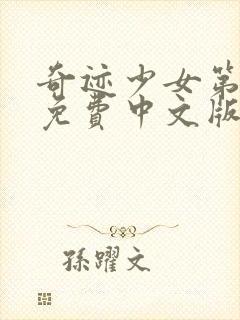 奇迹少女第
免费中文版
孫躍文